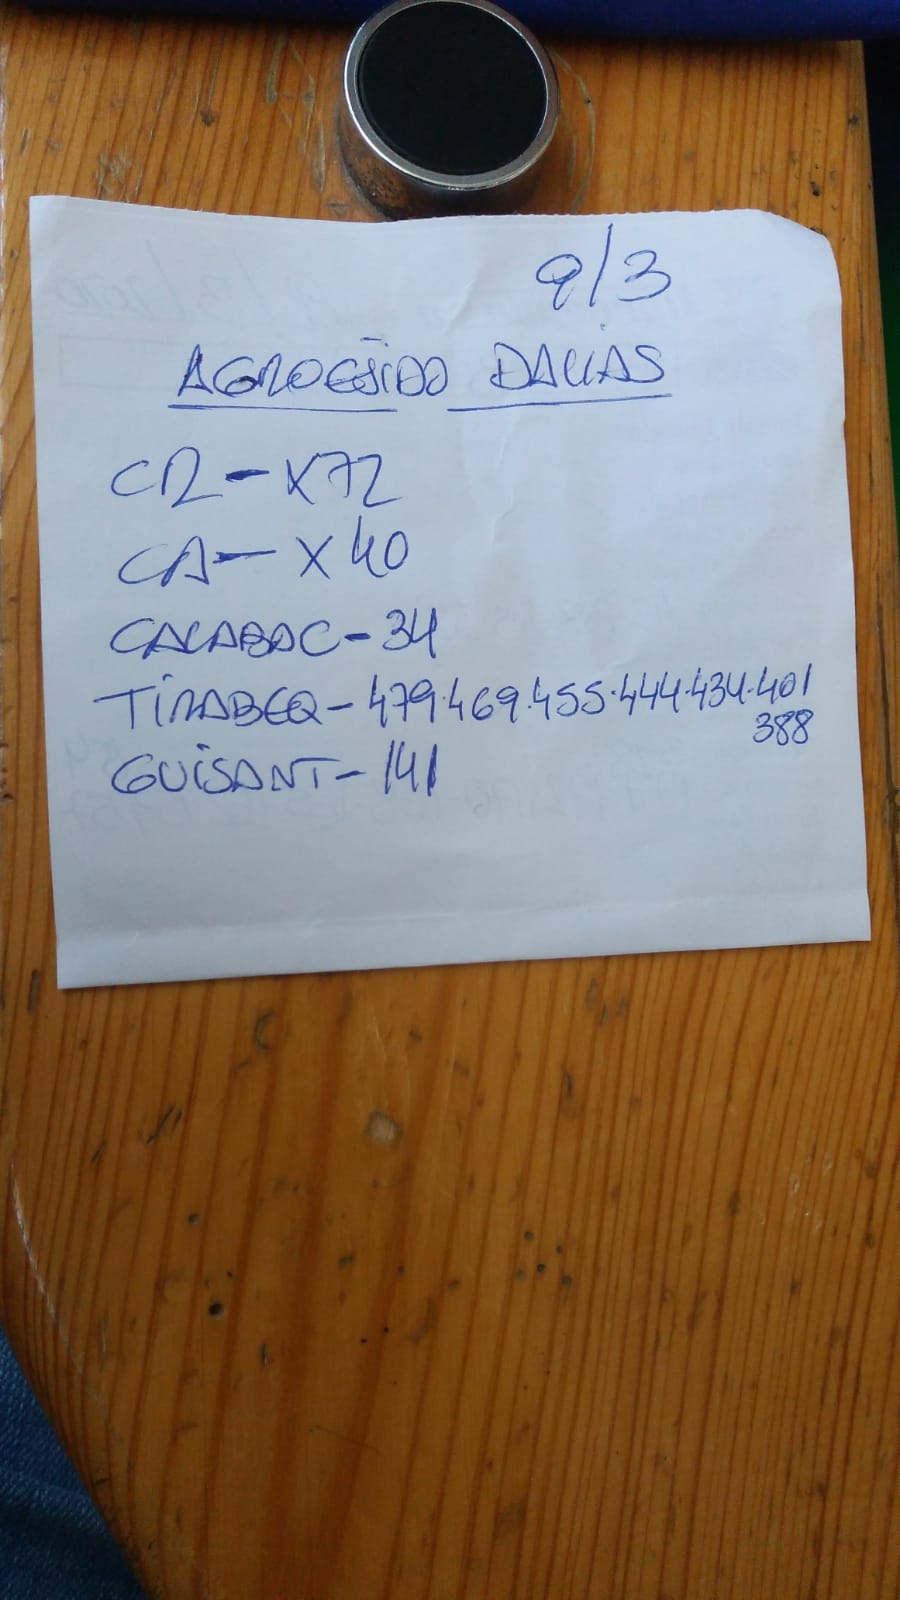 9/3
AGROEJIDO DALIAS
CR - X72
CA - X40
CALABAC - 34
TIRABEQ - 479.469.455.444.434.401
388
GUISANT - 141